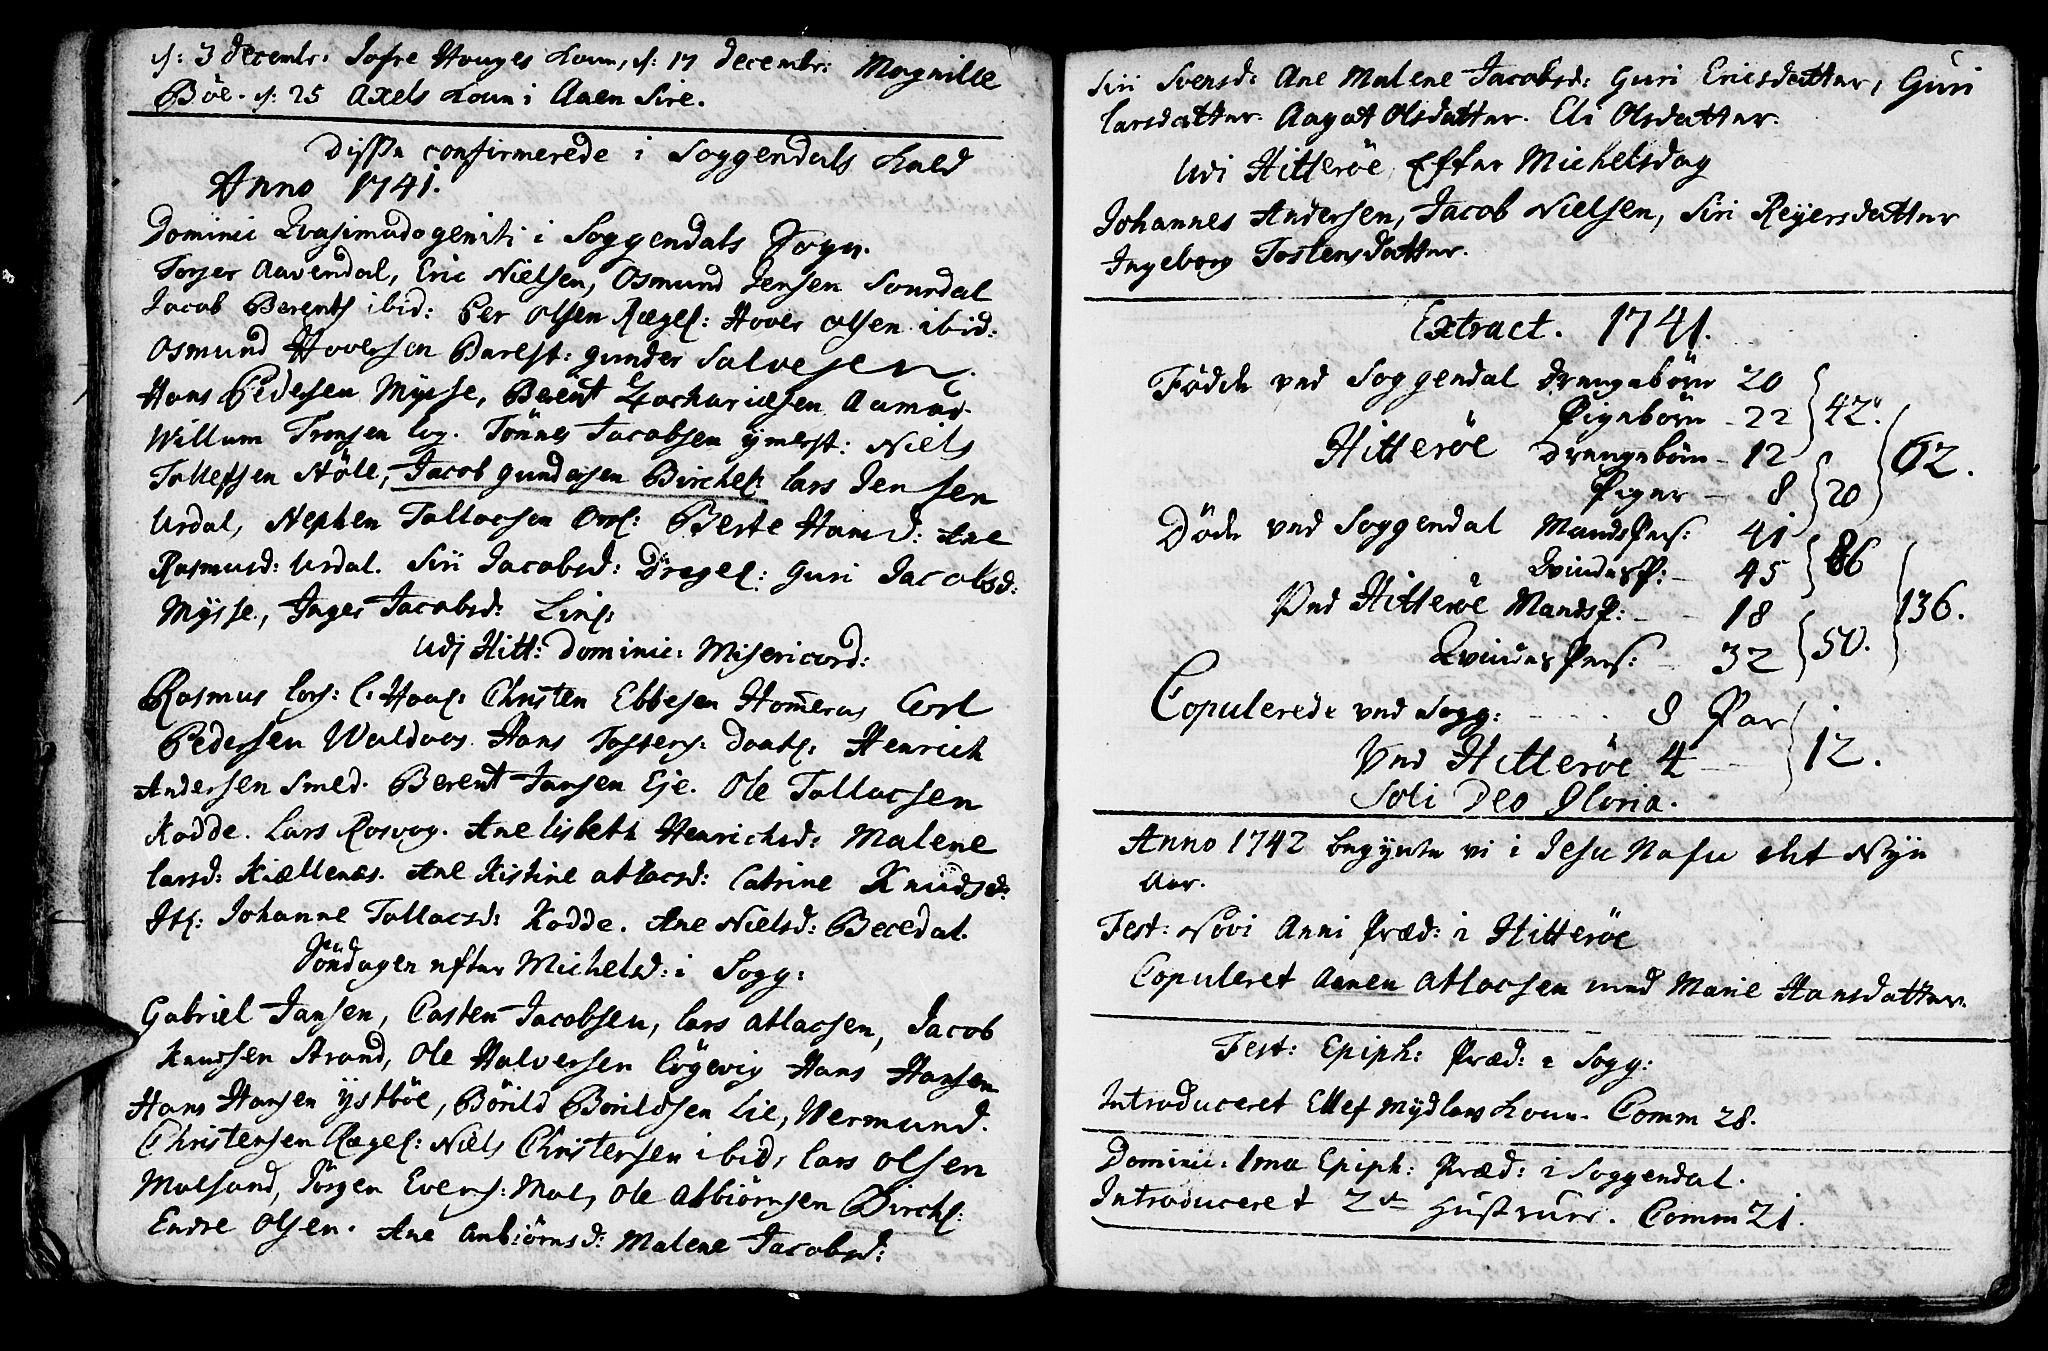 d: 3 decembr: Tofre Houges Koun, d: 17 decembr: Magnille
Böe. d: 25 Axels Koun i Aaen Sire.
Disse confirmerede i Soggendals Kald
Anno 1741.
Dominic Qvasimodogeniti i Soggendals Sogn.
Torger Aavendal, Eric Nielsen, Osmund Jensen Sourdal
Jacob Berents ibid: Per Olsen Rægef: Hover Olsen ibid:
Osmund Hoversen Barest: Gunder Salvesen,
Hans Pedersen Mysse, Berent Zachariesen Aamod.
Willum Tronsen log. Tönnes Jacobsen ymerst: Niels
Tollefsen Stöle, Jacob Gundersen Birchel: Lars Jensen
Urdal, Stephen Tollacsen Orsl: Berte Hansd: Ane
Rasmusd: Urdal. Siri Jacobsd: Dregel: Guri Jacobsd:
Mysse, Inger Jacobsd: Linl:
Udj Hitt: Dominic: Misericord:
Rasmus Lars: L. Haal: Christen Ebbesen Homeras Carl
Pedersen Waldvos. Hans Tosters: Doatl: Henrich
Andersen Smed. Berent Jansen Eje. Ole Tollacsen
Kodde. Lars Rosvog. Ane Lisbeth Henrichsd: Malene
Larsd: Kiællenæs. Ane Kistine Atlacsd: Catrine Knudsd:
Itl: Johanne Tollacsd: Kodde. Ane Nielsd: Becedal.
Söndagen efter Michelsd: i Sogg:
Gabriel Jansen, Casten Jacobsen, Lars Atlacsen, Jacob
Knudsen Strand, Ole Halversen Lögevig Hans Hansen
Hans Hansen ystböe, Börild Börildsen Lie, Vermund
Christensen Rægel: Niels Christensen ibid: Lars Olsen
Molsund, Jörgen Evers: Mol, Ole Asbiörnsen Birchl:
Endre Olsen. Ane Anbiörnsd: Malene Jacobsd:
Siri Svensd: Ane Malene Jacobsd: Guri Ericsdatter, Guri
Larsdatter. Aagot Olsdatter. Eli Olsdatter.
Udi Hitteröe Efter Michelsdag
Johannes Andersen, Jacob Nielsen, Siri Reyersdatter
Ingeborg Tostensdatter.
Extract. 1741.
Födde ved Soggendal Drengebörn 20
Pigebörn - 22 } 42.
Hitteröe Drengebörn - 12 } 62.
Piger - 8 } 20
Döde ved Soggendal Mands Pers: 41
Qvindes P: - 45 } 86
Ved Hitteröe Mandsp: - - 18 } 136.
Qvindes Pers: - 32 } 50.
Copulerede ved Sogg: - - - . 8 Par
Ved Hitteröe 4 - - } 12.
Soli Deo Gloria.
Anno 1742 begynte vi i Jesu Nafn det Nye
Aar.
Fest: Novi Anni Præd: i Hitteröe
Copuleret Aanen Atlacsen med Marie Hansdatter.
Fest: Epiph: Præd: i Sogg:
Introduceret Ellef Mydlans Koun. Comm 28.
Dominic: 1ma Epiph: Præd: i Soggendal.
Introduceret 2de Hustruer. Comm 21.